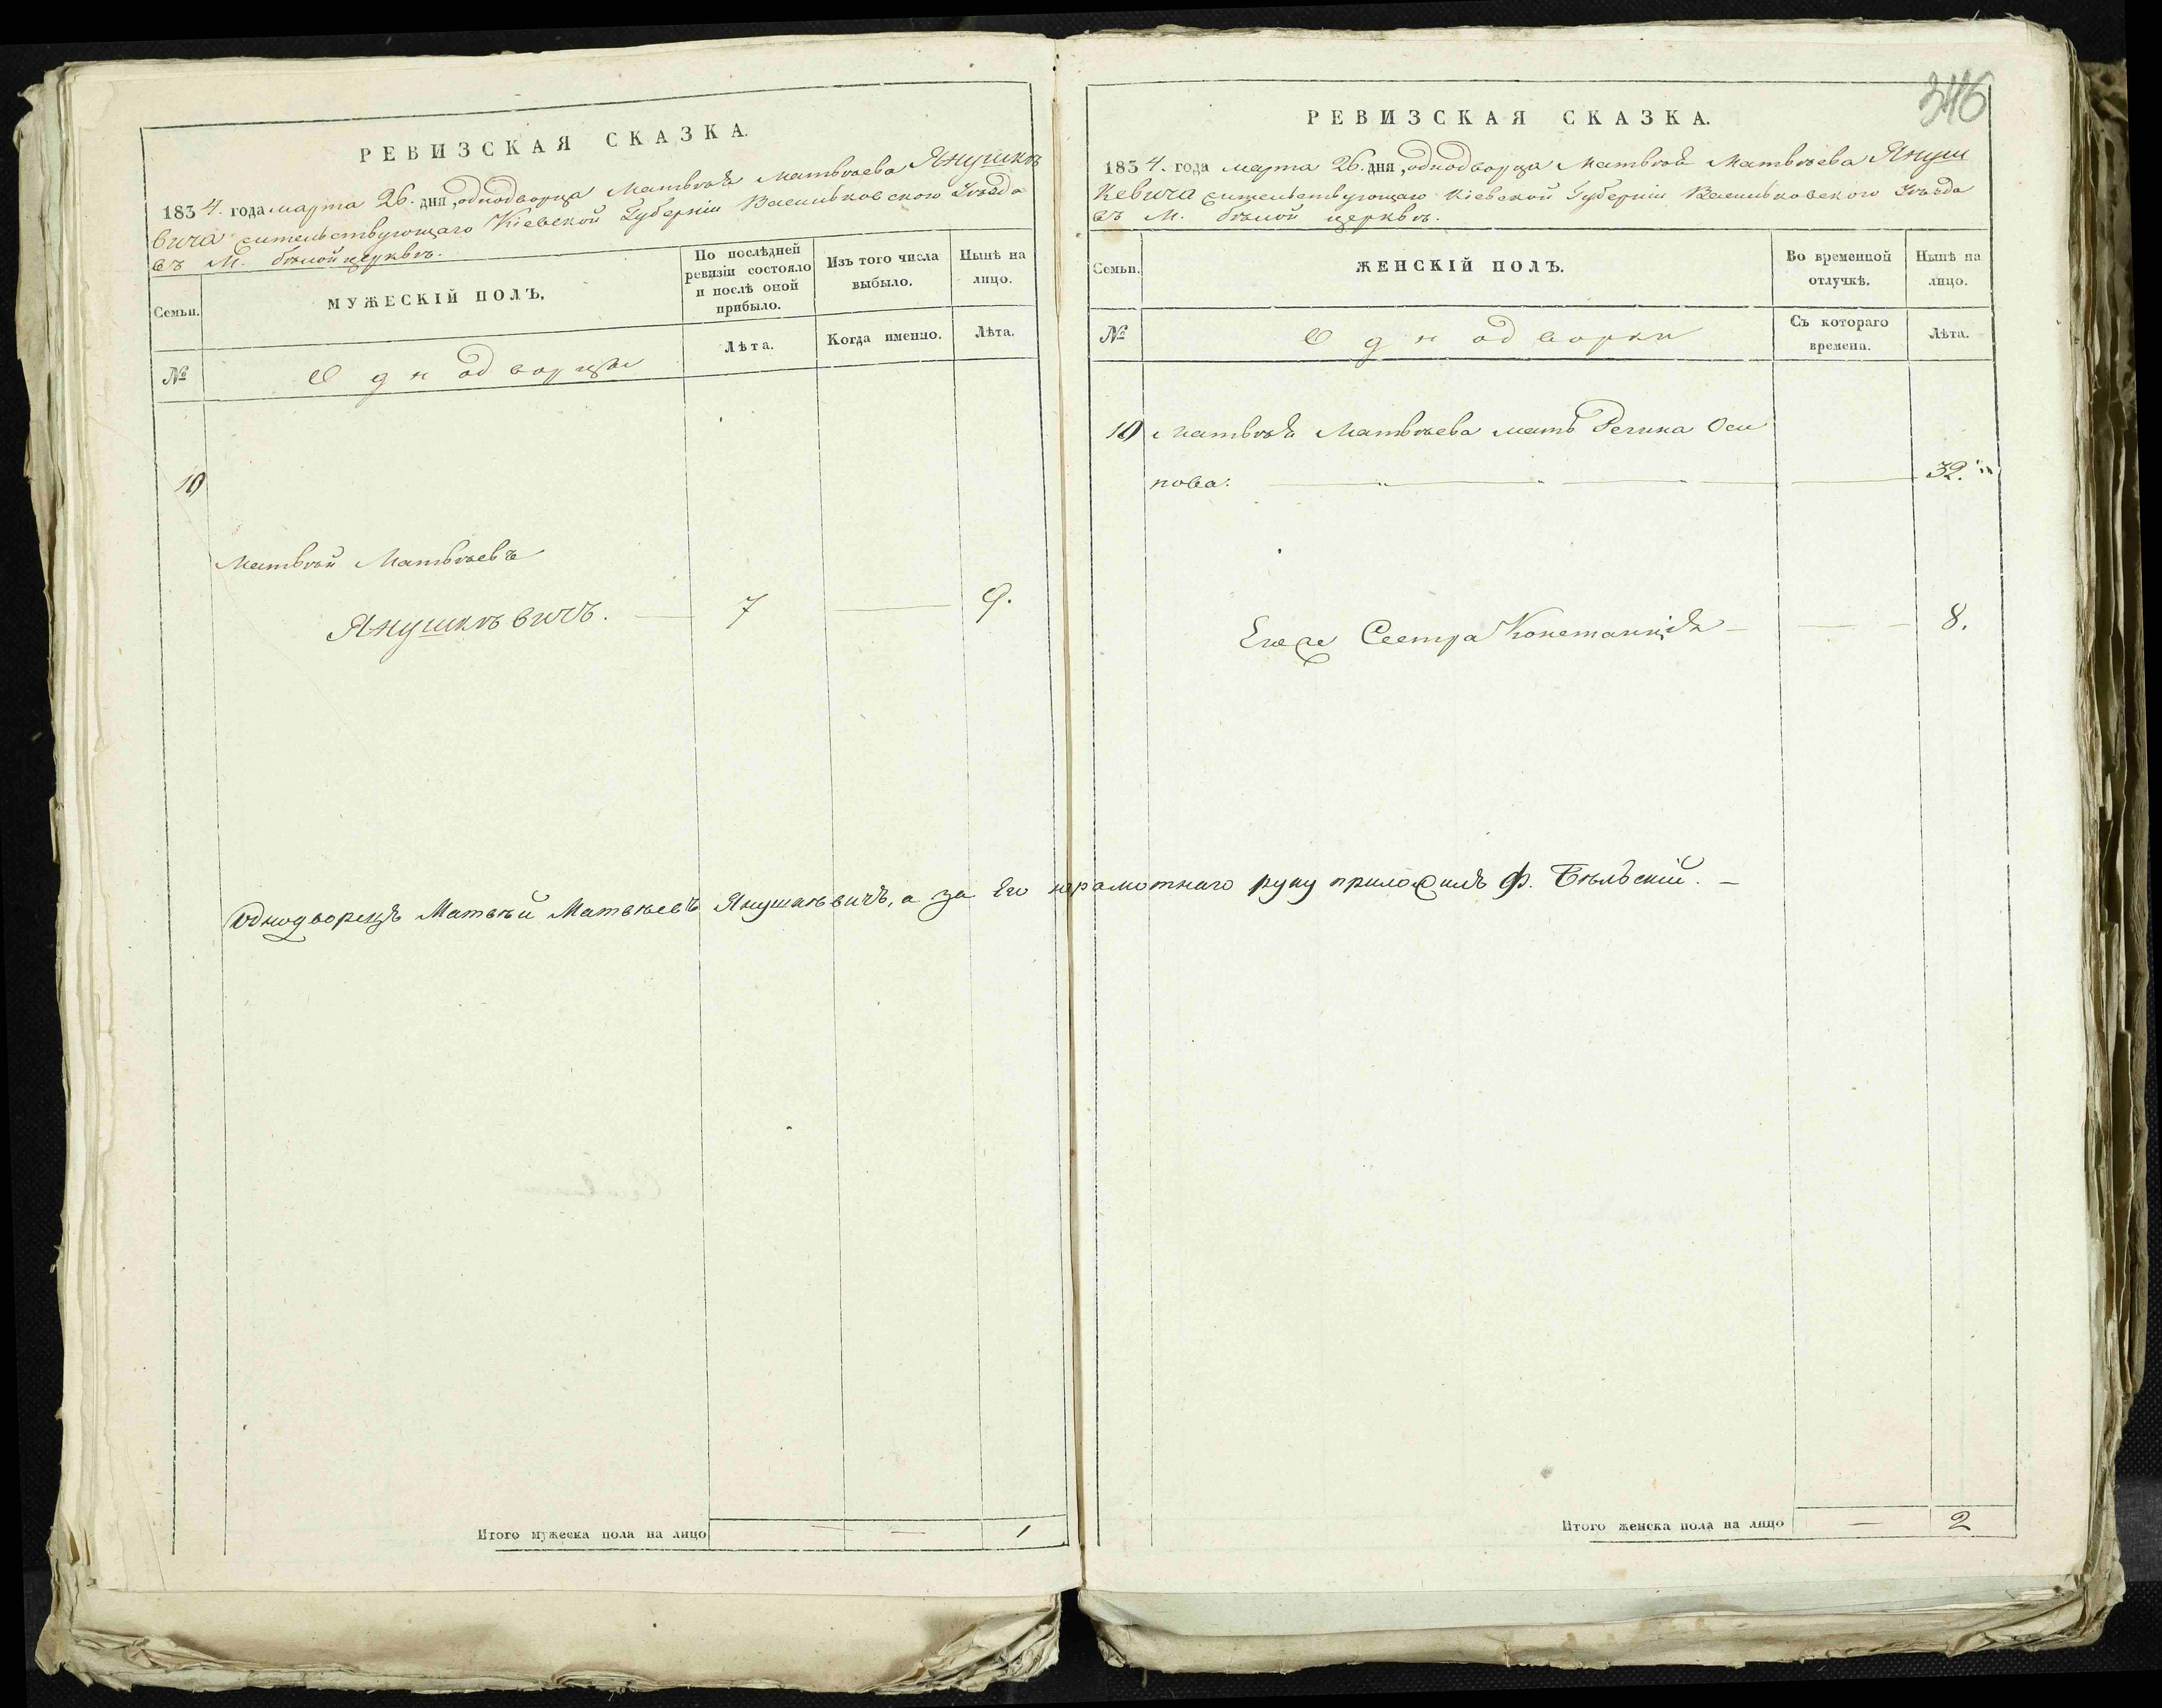 РЕВИЗСКАЯ СКАЗКА.
1834. года марта 26. дня, однодворца Матвѣя Матвѣева Янушкѣ
вича жительствующаго Кіевской Губерніи Васильковского Уѣзда
въ М. бѣлой церквѣ.
Семьи.
МУЖЕСКІЙ ПОЛЪ.
По послѣдней
ревизіи состояло
и послѣ оной
прибыло.
Изъ того числа
выбыло.
Нынѣ на
лицо.
№
Однодворцы
Лѣта.
Когда именно.
Лѣта.
10
Матвѣй Матвѣевъ
Янушкѣвичъ. 7 9.
Однодворецъ Матвѣй Матвѣевъ Янушкѣвичъ, а за Его неграмотнаго руку приложилъ Ф. Бѣльскій.
Итого мужеска пола на лицо — — 1
346
РЕВИЗСКАЯ СКАЗКА.
1834. года марта 26. дня, однодворца Матвѣя Матвѣева Януш
кевича жительствующаго Кіевской Губерніи Васильковского Уѣзда
въ М. бѣлой церквѣ.
Семьи.
ЖЕНСКІЙ ПОЛЪ.
Во временной
отлучкѣ.
Нынѣ на
лицо.
№
Однодворки
Съ котораго
времени.
Лѣта.
10 Матвѣя Матвѣева мать Регина Оси
пова. 32.
Егоже Сестра Констанція 8.
Итого женска пола на лицо — 2